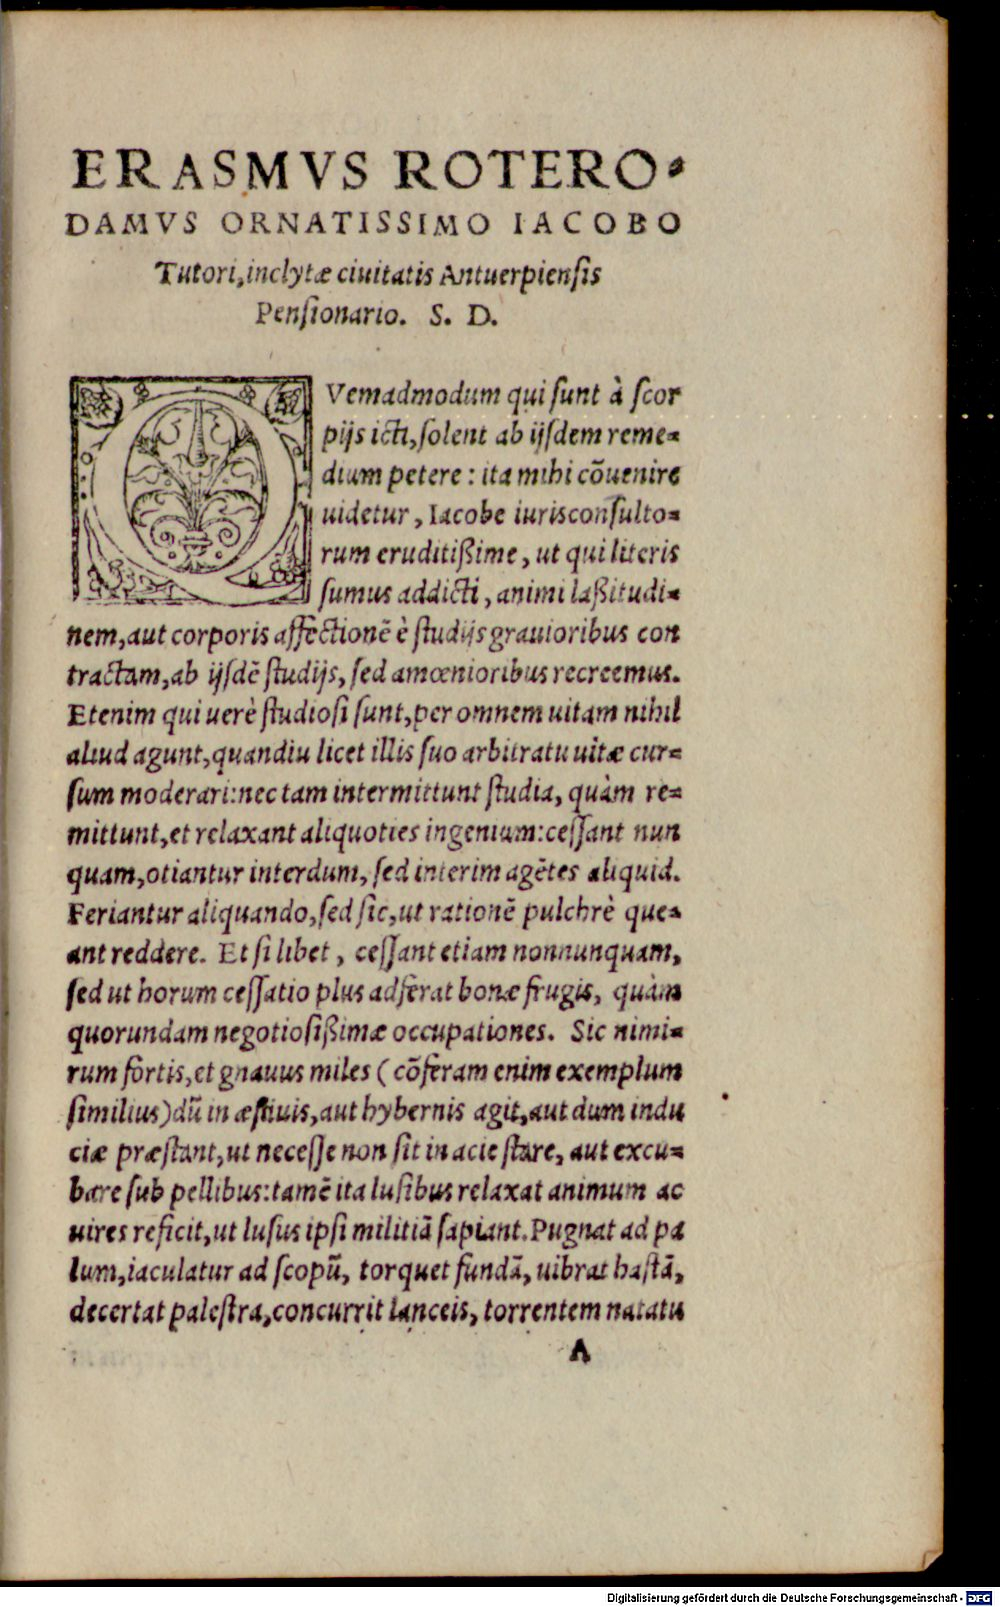 ERASMVS ROTERO-
DAMVS ORNATISSIMO IACOBO
Tutori, inclytæ ciuitatis Antuerpiensis
Pensionario. S. D.
QVemadmodum qui sunt à scor
pijs icti, solent ab ijsdem reme-
dium petere : ita mihi cōuenire
uidetur, Iacobe iurisconsulto-
rum eruditißime, ut qui literis
sumus addicti, animi laßitudi-
nem, aut corporis affectionē è studijs grauioribus con
tractam, ab ijsdē studijs, sed amœnioribus recreemus.
Etenim qui uerè studiosi sunt, per omnem uitam nihil
aliud agunt, quandiu licet illis suo arbitratu uitæ cur-
sum moderari: nec tam intermittunt studia, quàm re-
mittunt, et relaxant aliquoties ingenium: cessant nun
quam, otiantur interdum, sed interim agētes aliquid.
Feriantur aliquando, sed sic, ut rationē pulchrè que-
ant reddere. Et si libet, cessant etiam nonnunquam,
sed ut horum cessatio plus adferat bonæ frugis, quàm
quorundam negotiosißimæ occupationes. Sic nimi-
rum fortis, et gnauus miles (cōferam enim exemplum
similius) dū in æstiuis, aut hybernis agit, aut dum indu
ciæ præstant, ut necesse non sit in acie stare, aut excu-
bare sub pellibus: tamē ita lusibus relaxat animum ac
uires reficit, ut lusus ipsi militiā sapiant. Pugnat ad pa
lum, iaculatur ad scopū, torquet fundā, uibrat hastā,
decertat palestra, concurrit lanceis, torrentem natatu
A
Digitalisierung gefördert durch die Deutsche Forschungsgemeinschaft - DFG